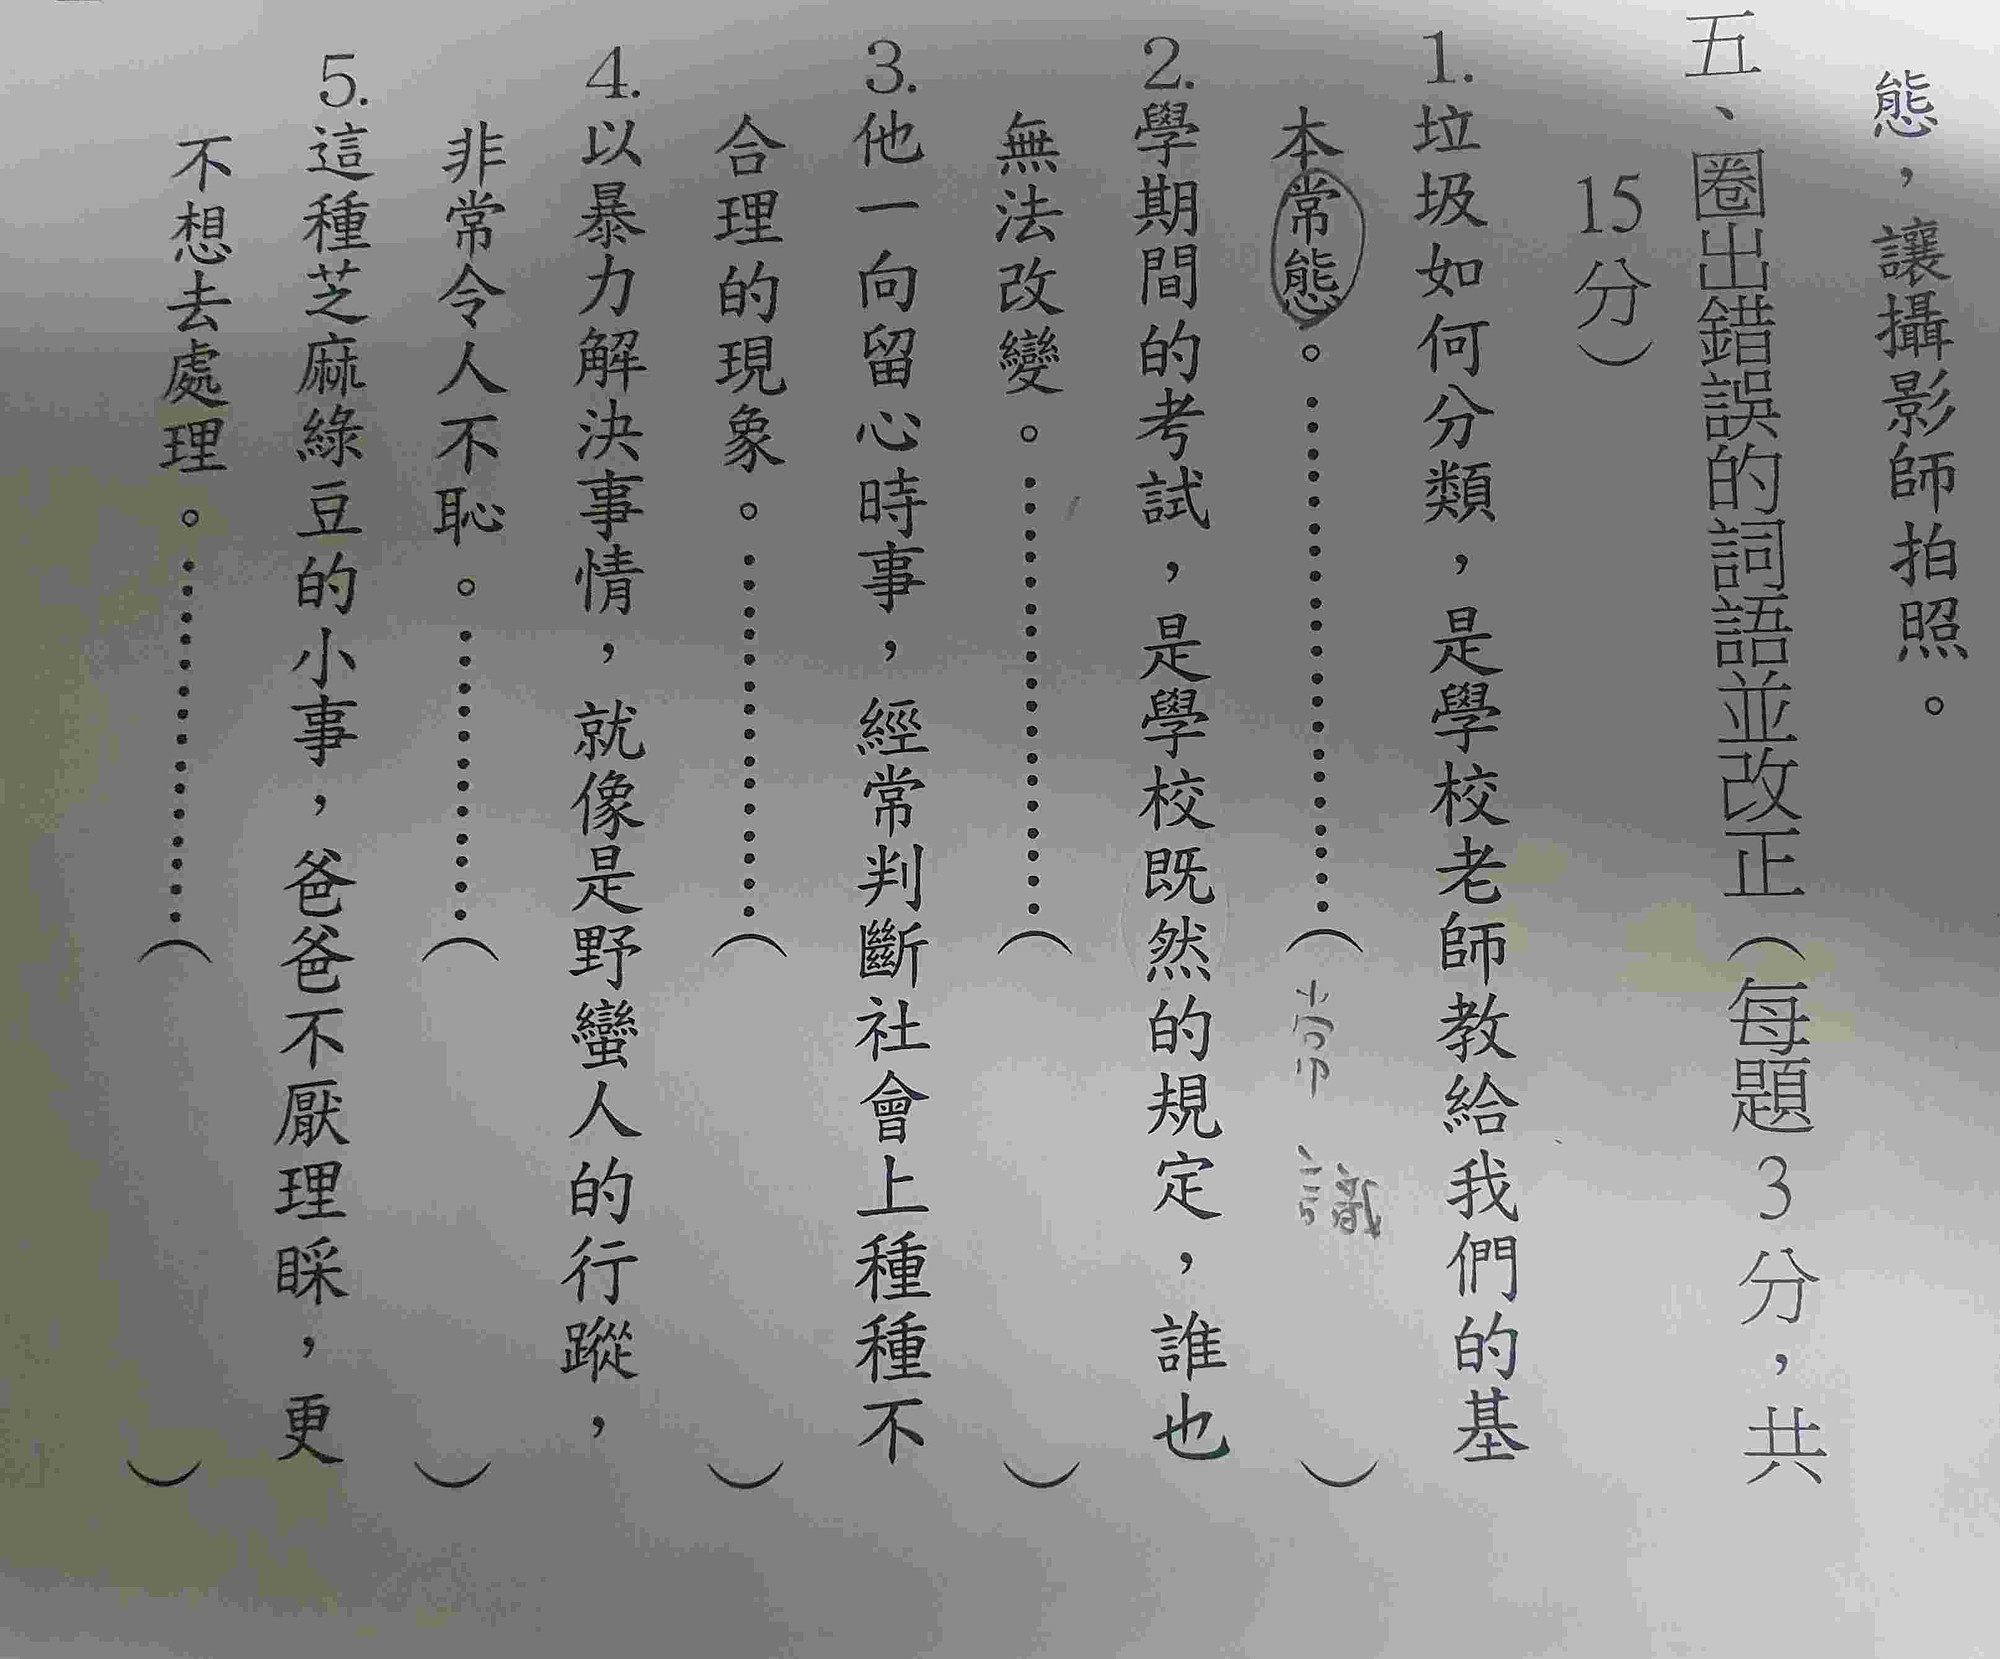 態，讓攝影師拍照。
五、圈出錯誤的詞語並改正（每題3分，共
15分）
1.垃圾如何分類，是學校老師教給我們的基
本常態。⋯⋯⋯⋯⋯⋯⋯（常識）
2.學期間的考試，是學校既然的規定，誰也
無法改變。⋯⋯⋯⋯⋯⋯（）
3.他一向留心時事，經常判斷社會上種種不
合理的現象。⋯⋯⋯⋯⋯（）
4.以暴力解決事情，就像是野蠻人的行蹤，
非常令人不恥。⋯⋯⋯⋯（）
5.這種芝麻綠豆的小事，爸爸不厭理睬，更
不想去處理。⋯⋯⋯⋯⋯（）